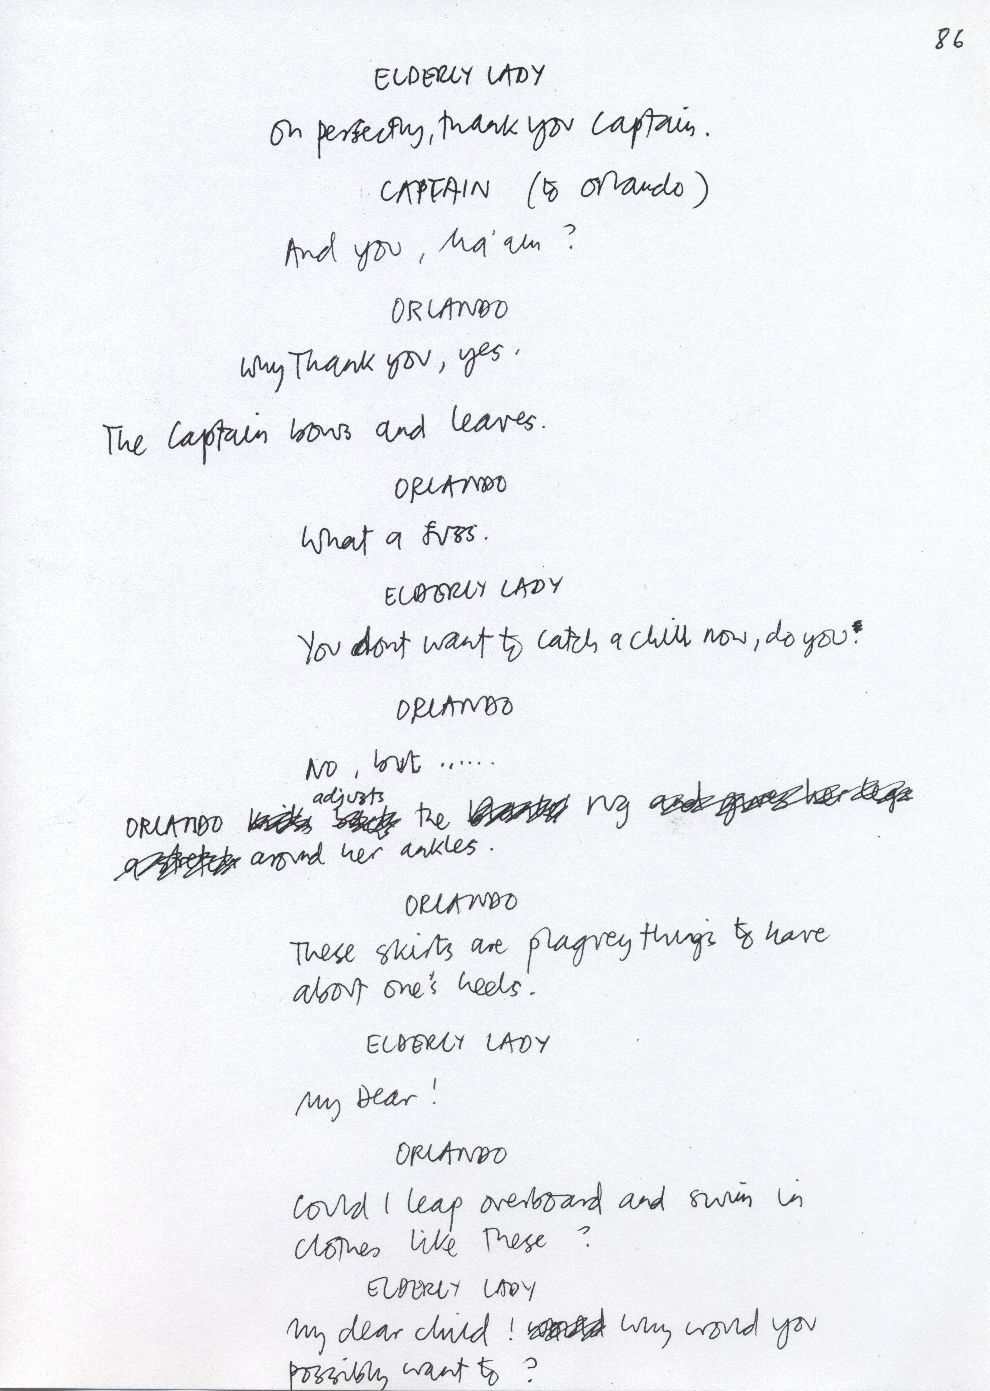 86
ELDERLY LADY
Oh perfectly, thank you Captain.
CAPTAIN (to Orlando)
And you, Ma'am?
ORLANDO
Why Thank you, yes.
The Captain bows and leaves.
ORLANDO
What a fuss.
ELDERLY LADY
You dont want to catch a chill now, do you?
ORLANDO
No, but ......
adjusts
ORLANDO the rug
around her ankles.
ORLANDO
These skirts are plaguey things to have
about one's heels.
ELDERLY LADY
My Dear!
ORLANDO
Could I leap overboard and swim in
clothes like these?
ELDERLY LADY
My dear child! Why would you
possibly want to?